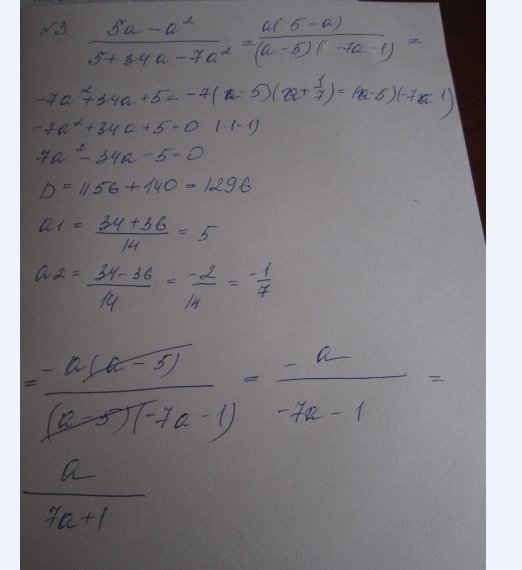 №3. (5a - a²)/(5 + 34a - 7a²) = a(5 - a)/((a - 5)(-7a - 1)) =
-7a² + 34a + 5 = -7(a - 5)(a + 1/7) = (a - 5)(-7a - 1)
-7a² + 34a + 5 = 0 | · (-1)
7a² - 34a - 5 = 0
D = 1156 + 140 = 1296
a1 = (34 + 36)/14 = 5
a2 = (34 - 36)/14 = -2/14 = -1/7
= -a(a - 5)/((a - 5)(-7a - 1)) = -a/(-7a - 1) =
a/(7a + 1)